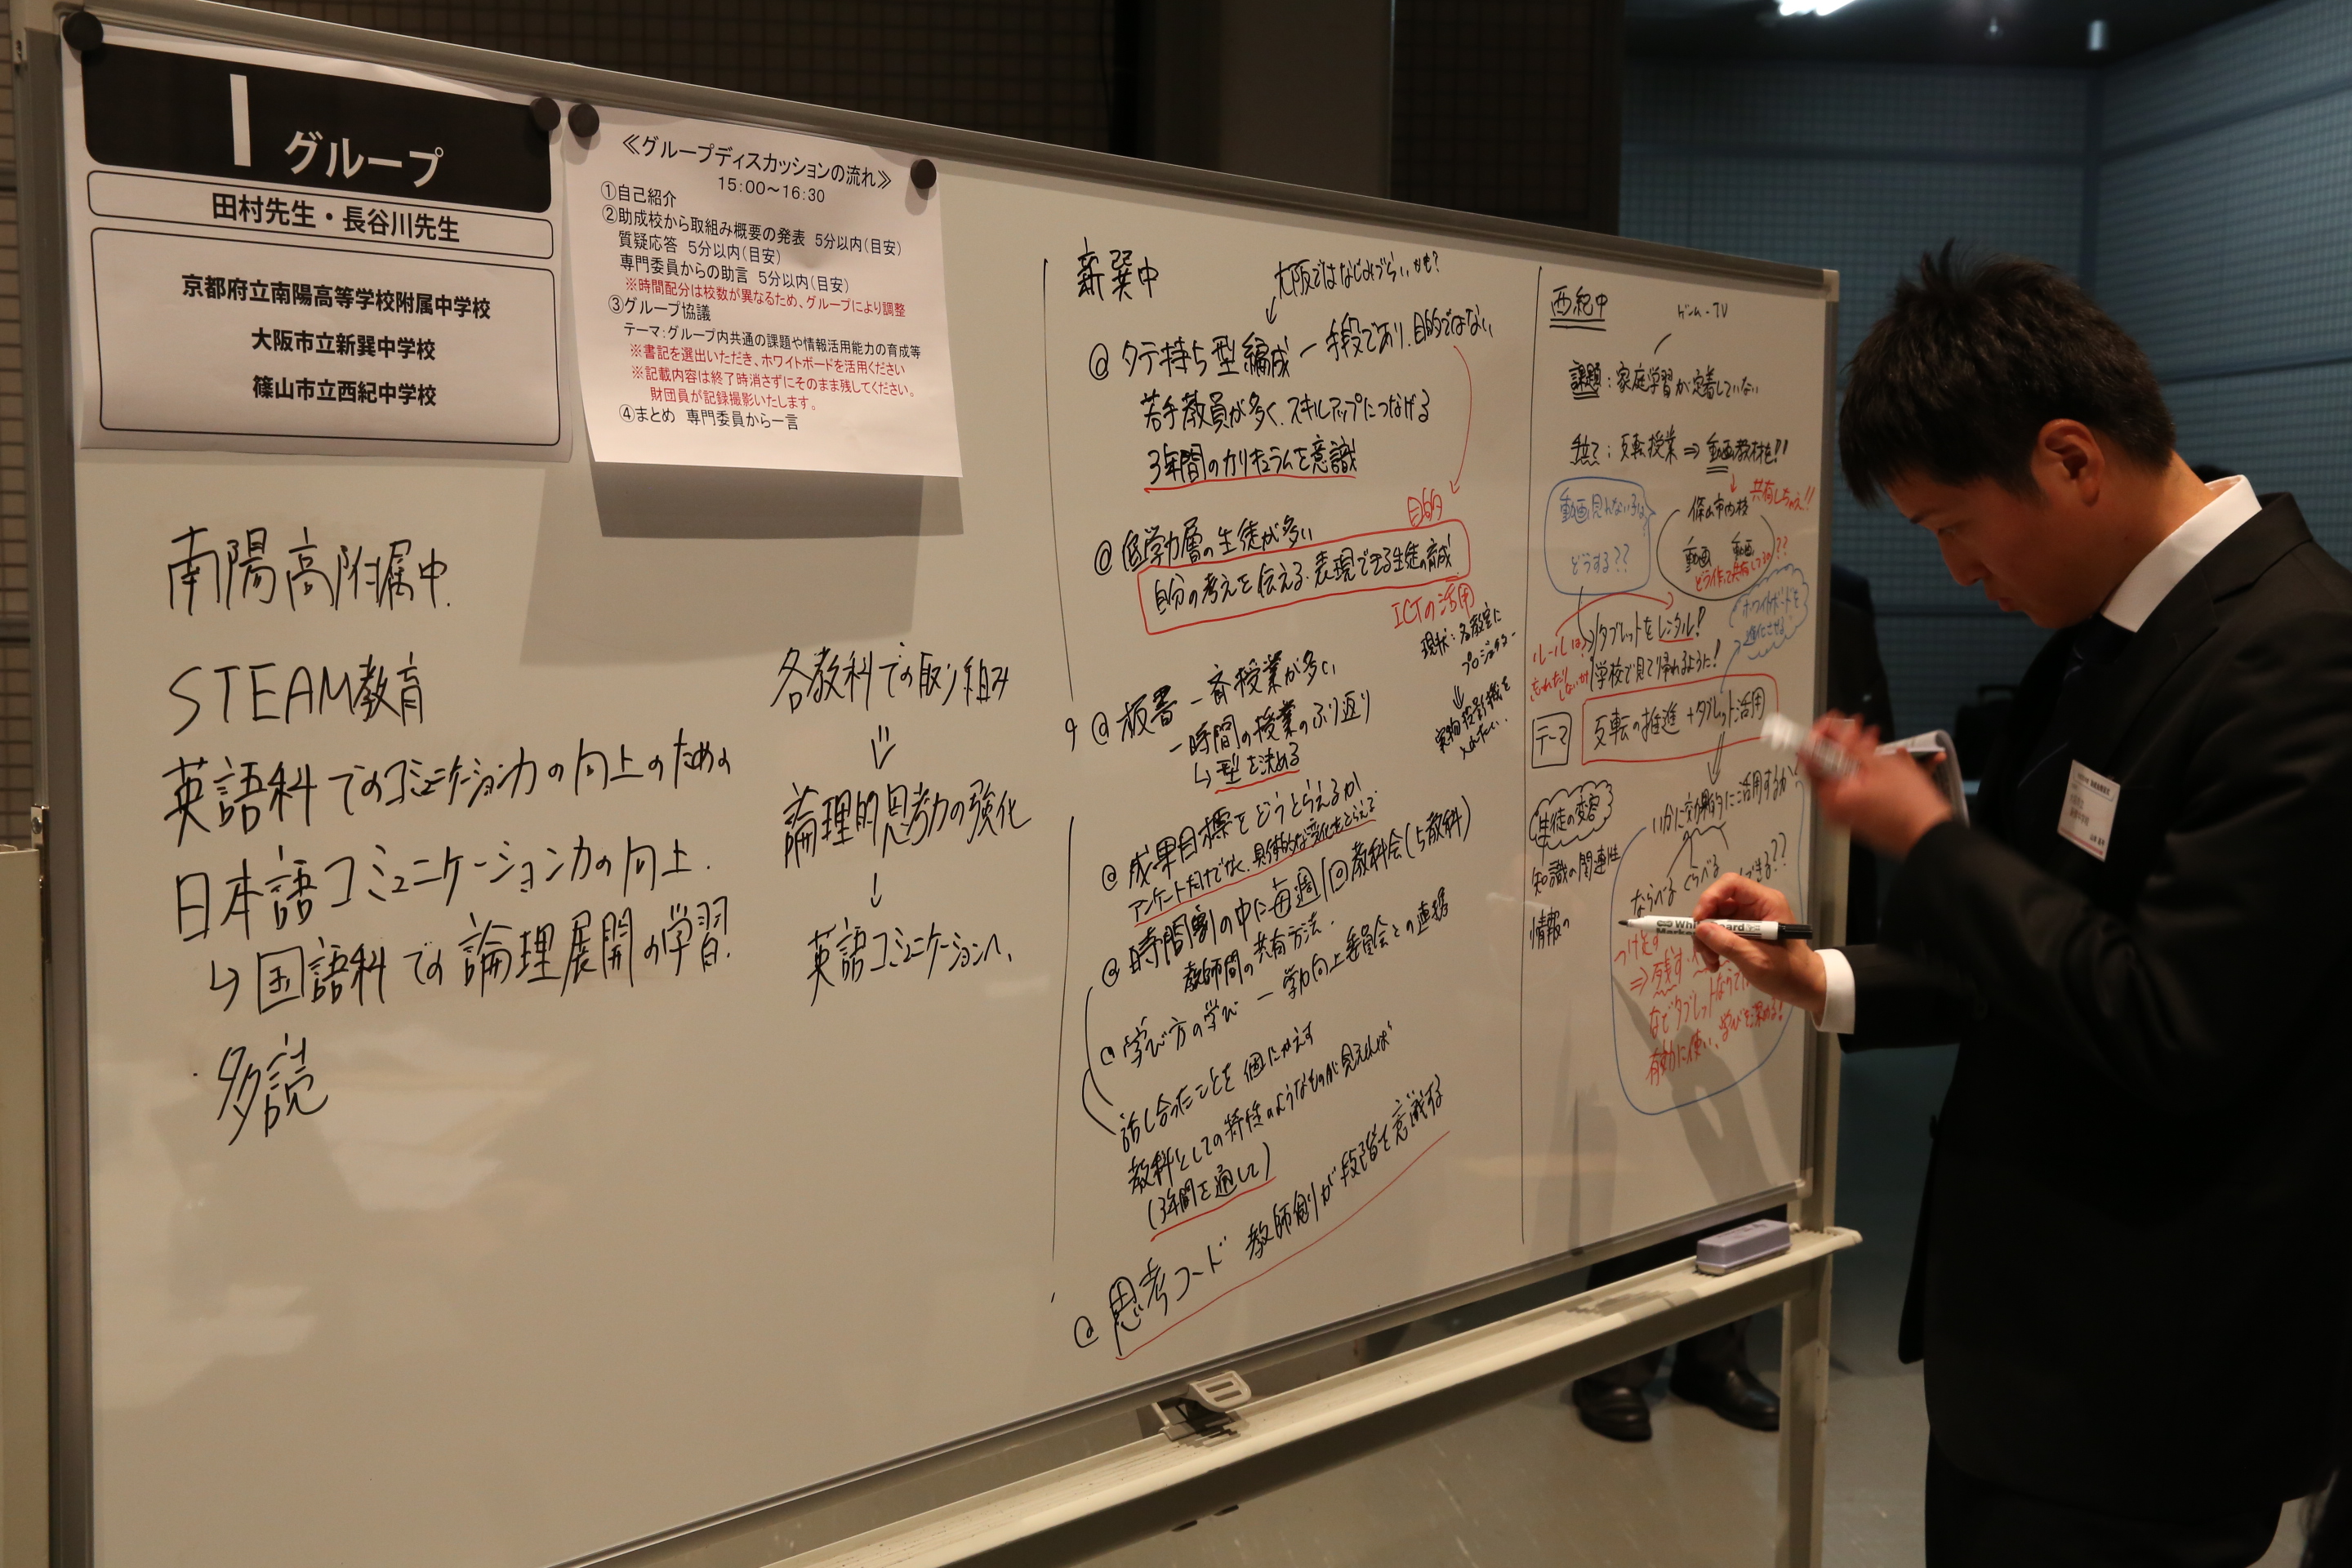 I グループ
田村先生・長谷川先生
京都府立南陽高等学校附属中学校
大阪市立新巽中学校
篠山市立西紀中学校
≪グループディスカッションの流れ≫
15:00～16:30
①自己紹介
②助成校から取組み概要の発表 5分以内(目安)
質疑応答 5分以内(目安)
専門委員からの助言 5分以内(目安)
※時間配分は校数が異なるため、グループにより調整
③グループ協議
テーマ:グループ内共通の課題や情報活用能力の育成等
※書記を選出いただき、ホワイトボードを活用ください
※記載内容は終了時消さずにそのまま残してください。
財団員が記録撮影いたします。
④まとめ 専門委員から一言
南陽高附属中.
STEAM教育
英語科でのコミュニケーション力の向上のための
日本語コミュニケーション力の向上.
↳国語科での論理展開の学習.
・多読
各教科での取り組み
⇓
論理的思考力の強化
↓
英語コミュニケーションへ.
新巽中
大阪ではなじみづらいかも?
@ タテ持ち型編成 ー 手段であり、目的ではない
若手教員が多く、スキルアップにつなげる
3年間のカリキュラムを意識
目的
@ 低学力層の生徒が多い
自分の考えを伝える・表現できる生徒の育成
ICTの活用
現状:各教室に
プロジェクター
⇓
実物投影機を
入れたい..
@ 板書 ー 一斉授業が多い
ー 一時間の授業のふり返り
↳ 型を決める
@ 成果目標をどうとらえるか
アンケートだけでなく、具体的な変化をとらえて
@ 時間割の中に毎週1回教科会(5教科)
教師間の共有方法・
@ 学び方の学び ー 学力向上委員会との連携
話し合ったことを個にかえす
教科としての特性のようなものが見えれば
(3年間を通して)
@ 思考コード 教師側が段階を意識する
西紀中
ゲーム・TV
課題:家庭学習が定着していない
手立て:反転授業 ⇒ 動画教材を!!
共有しちゃえ!!
動画見んない子は
どうする??
篠山市内校
動画 動画
どう作って共有してる??
ホワイトボードを
進化させる
ルールは?
タブレットをレンタル!
学校で見て帰れるように!
テーマ
反転の推進+タブレット活用
⇓
いかに効果的に活用するか
生徒の変容
知識の関連性
情報の
ならべる くらべる
⇒ 残す・
などタブレットならでは
有効に使い、学びを深める!
Whiteboard
Marker